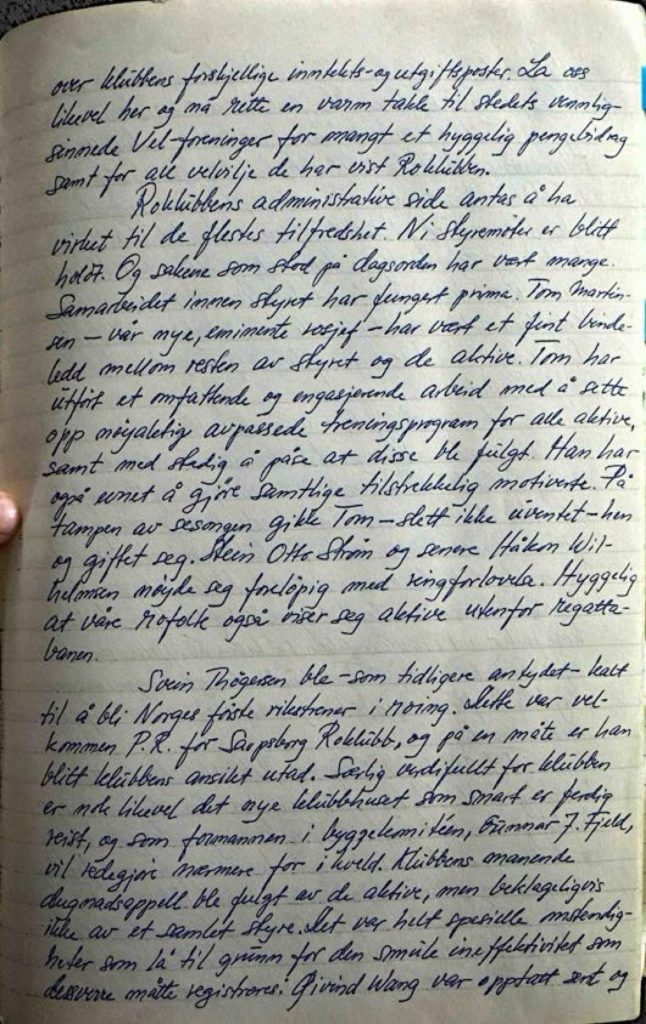 over klubbens forskjellige inntekts- og utgiftsposter. La oss
likevel her og nå rette en varm takk til stedets vennlig-
sinnede Vel-foreninger for mangt et hyggelig pengebidrag
samt for all velvilje de har vist Roklubben.
Roklubbens administrative side antas å ha
virket til de flestes tilfredshet. Ni styremøter er blitt
holdt. Og sakene som stod på dagsorden har vært mange.
Samarbeidet innen styret har fungert prima. Tom Martin-
sen – vår nye, eminente rosjef – har vært et fint binde-
ledd mellom resten av styret og de aktive. Tom har
utført et omfattende og engasjerende arbeid med å sette
opp nöyaktig avpassede treningsprogram for alle aktive,
samt med stedig å påse at disse ble fulgt. Han har
også evnet å gjöre samtlige tilstrekkelig motiverte. På
tampen av sesongen gikk Tom – slett ikke uventet – hen
og giftet seg. Stein Otto Ström og senere Håkon Wil-
helmsen nöyde seg forelöpig med ringforlovelse. Hyggelig
at våre rofolk også viser seg aktive utenfor regatta-
banen.
Svein Thögersen ble – som tidligere antydet – kalt
til å bli Norges förste rikstrener i roing. Dette var vel-
kommen P.R. for Sarpsborg Roklubb, og på en måte er han
blitt klubbens ansikt utad. Særlig verdifullt for klubben
er nok likevel det nye klubbhuset som snart er ferdig
reist, og som formannen i byggekomitéen, Gunnar J. Fjeld,
vil redegjöre nærmere for i kveld. Klubbens manende
dugnadsappell ble fulgt av de aktive, men beklageligvis
ikke av et samlet styre. Det var helt spesielle omstendig-
heter som lå til grunn for den smule ineffektivitet som
dessverre måtte registreres: Öivind Wang var opptatt sent og